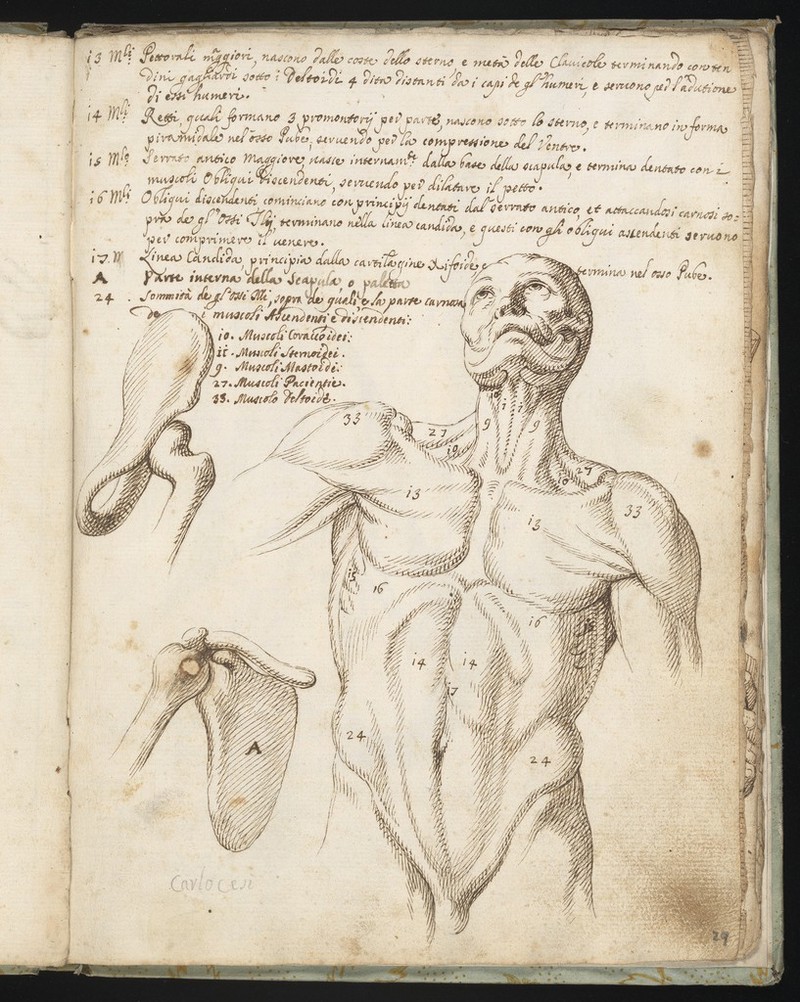 13 Mli Pettorali maggiori, nascono dalle coste dello sterno e metà delle Clavicole terminando con ten
dini gagliardi sotto i Deltoidi 4 dita distanti da i capi de gl'humeri, e seruono per l'adutione
di essi humeri.
14 Mli Retti, quali formano 3 promontorij per parte, nascono sotto lo sterno, e terminano in forma
piramidale nel'osso Pube, seruendo per la compressione del Ventre.
15 Mlo Serrato antico Maggiore, nasce internamte dalla base della scapula, e termina dentato con i
muscoli Obliqui discendenti, seruendo per dilatare il petto.
16 Mli Obliqui discendenti cominciano con principij dentati dal serrato antico, et attaccandosi carnosi so=
pra de gl'Ossi Ilij, terminano nella linea candida, e questi con gli obliqui ascendenti seruono
per comprimere il uenere.
17. M Linea Candida, principia dalla cartilagine Xifoide e termina nel osso Pube.
A Parte interna della Scapula o paletta
24 . Sommità de gl'Ossi Illi, sopra de quali è la parte carnosa
de i muscoli Ascendenti e discendenti:
10. Muscoli Coracoidei:
11. Muscoli Sternoidei.
9. Muscoli Mastoidei.
27. Muscoli Pacientie.
33. Muscolo Deltoide.
33
27
10
9
7
7
9
27
10
33
13
13
15
16
16
14
14
17
24
24
A
Carlo Cesi
29